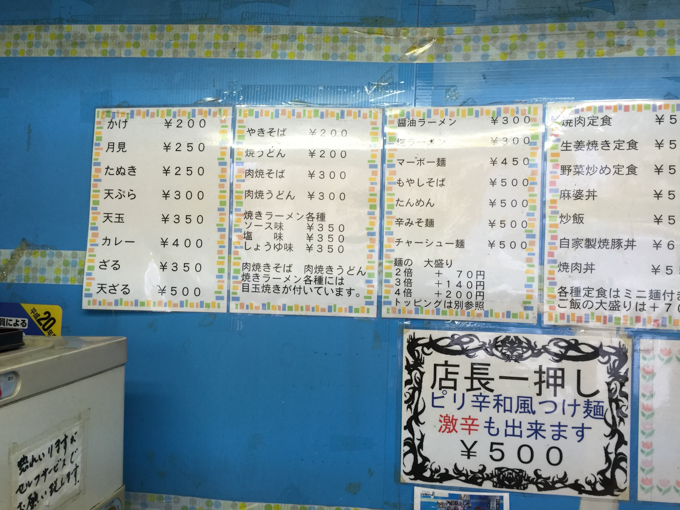 かけ ￥200
月見 ￥250
たぬき ￥250
天ぷら ￥300
天玉 ￥350
カレー ￥400
ざる ￥350
天ざる ￥500
やきそば ￥200
焼うどん ￥200
肉焼そば ￥300
肉焼うどん ￥300
焼きラーメン各種
ソース味 ￥350
塩 味 ￥350
しょうゆ味 ￥350
肉焼きそば 肉焼きうどん
焼きラーメン各種には
目玉焼きが付いています。
醤油ラーメン ￥300
ラーメン ￥300
マーボー麺 ￥450
もやしそば ￥500
たんめん ￥500
辛みそ麺 ￥500
チャーシュー麺 ￥500
麺の 大盛り
2倍 ＋ 70円
3倍 ＋140円
4倍 ＋200円
トッピングは別参照
焼肉定食 ￥5
生姜焼き定食 ￥5
野菜炒め定食 ￥5
麻婆丼 ￥5
炒飯 ￥5
自家製焼豚丼 ￥6
焼肉丼 ￥5
各種定食はミニ麺付き
ご飯の大盛りは＋70
店長一押し
ピリ辛和風つけ麺
激辛も出来ます
￥500
員による
平成20年
セルフサービスで
お願い致します